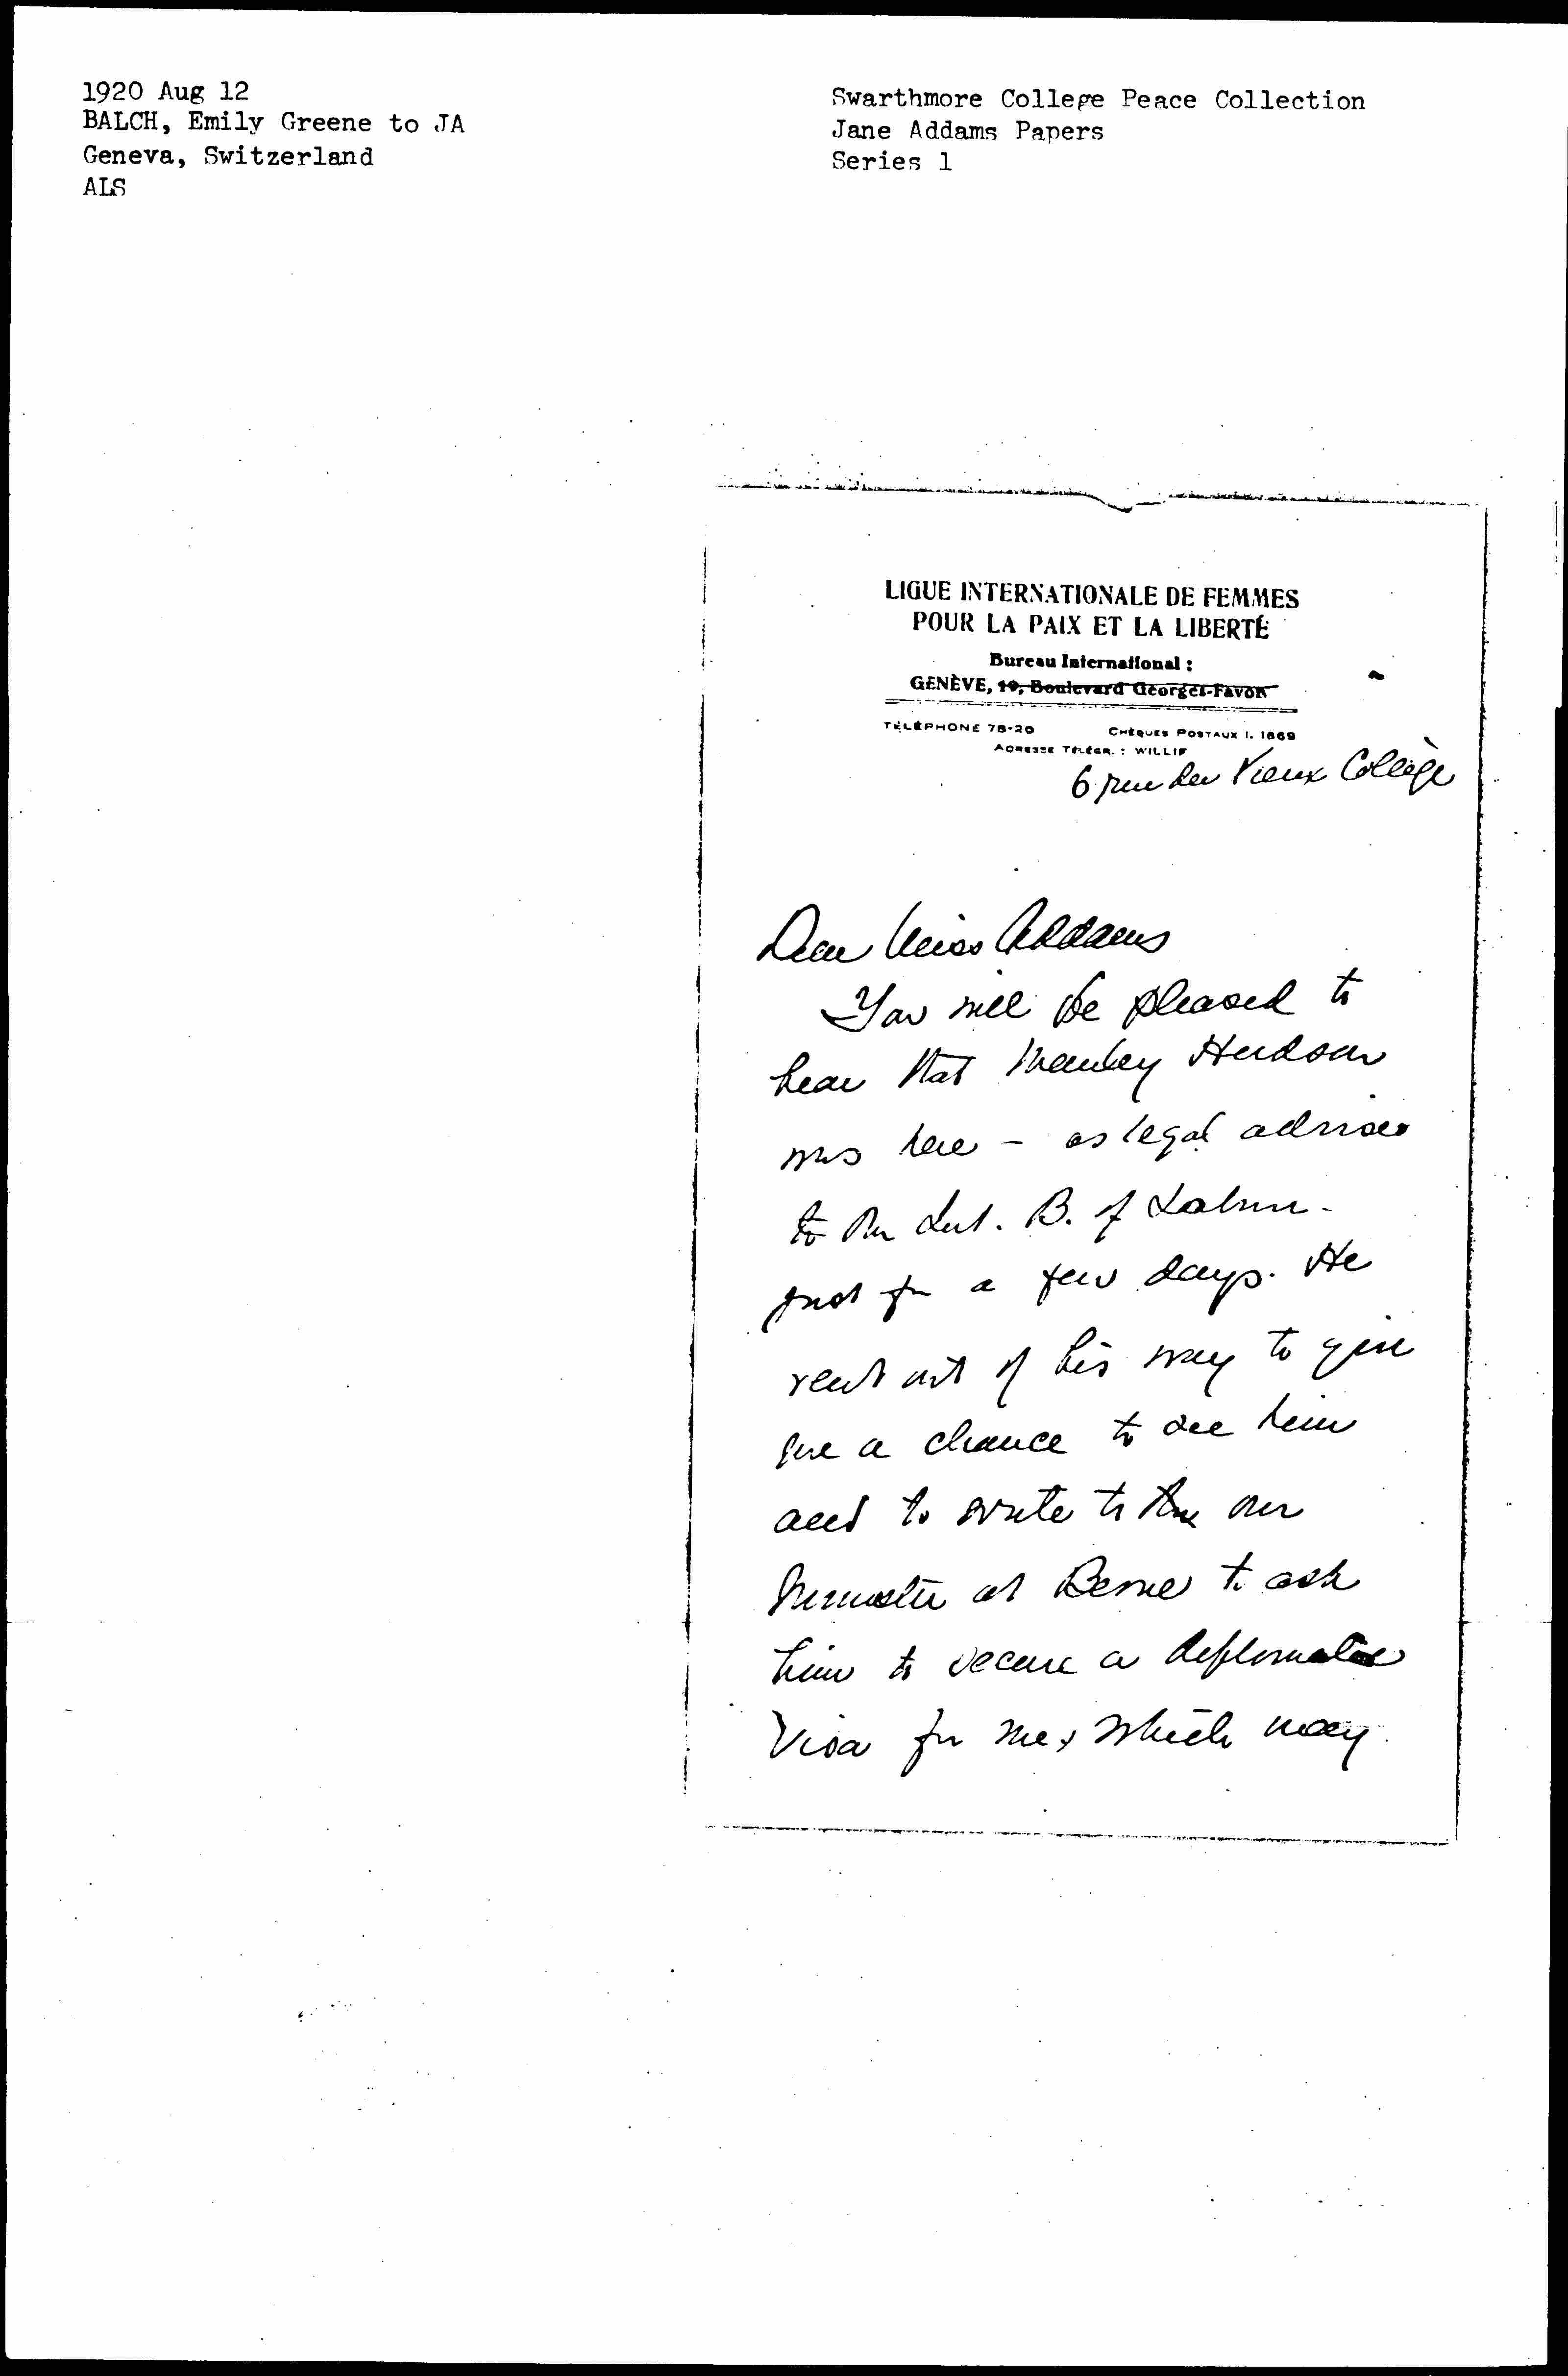 1920 Aug 12
BALCH, Emily Greene to JA
Geneva, Switzerland
ALS
Swarthmore College Peace Collection
Jane Addams Papers
Series 1
LIGUE INTERNATIONALE DE FEMMES
POUR LA PAIX ET LA LIBERTÉ
Bureau International :
GENÈVE, 19, Boulevard Georges-Favon
TÉLÉPHONE 78-20 CHÈQUES POSTAUX I. 1869
ADRESSE TÉLÉGR. : WILLIF
6 rue du Vieux Collège
Dear Miss Addams
You will be pleased to
hear that Manley Hudson
was here - as legal adviser
to the Int. B. of Labour -
just for a few days. He
went out of his way to give
me a chance to see him
and to write to the our
Minister at Berne to ask
him to secure a diplomatic
Visa for me, which may